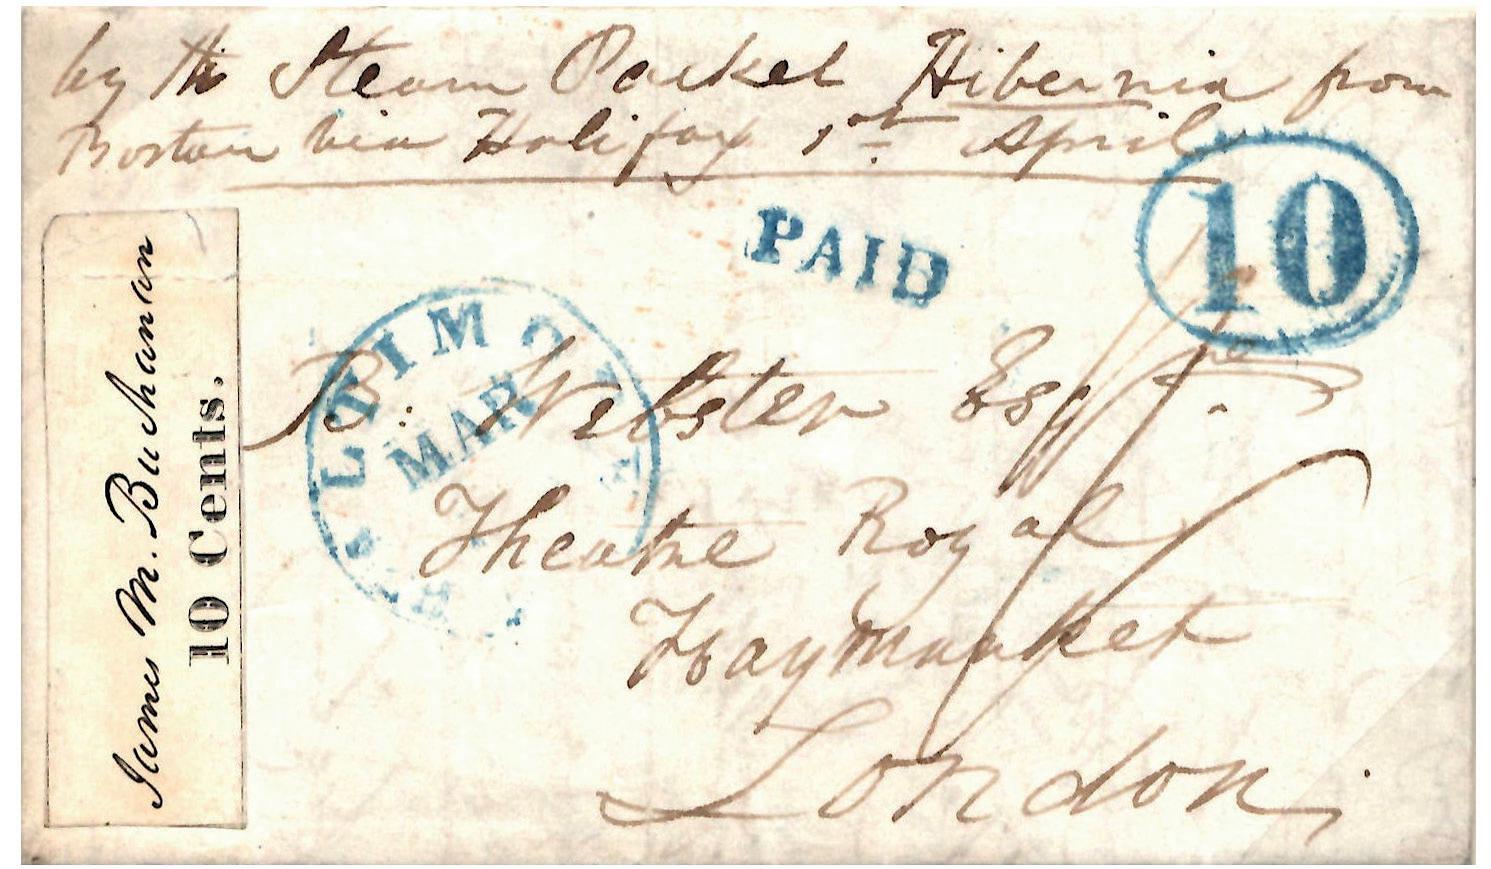 by the Steam Packet Hibernia from
Boston via Halifax 1st April
10
PAID
James M. Buchanan
10 Cents.
MAR
B. Webster Esqre
Theatre Royal
Haymarket
London.